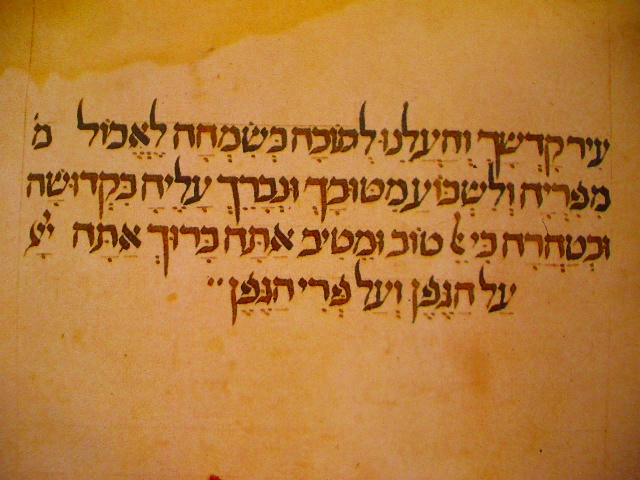 עיר קדשך והעלנו לתוכה בשמחה לאכול מ
מפריה ולשבוע מטובך ונברך עליה בקדושה
ובטהרה כי טוב ומטיב אתה ברוך אתה יי
על הגפן ועל פרי הגפן